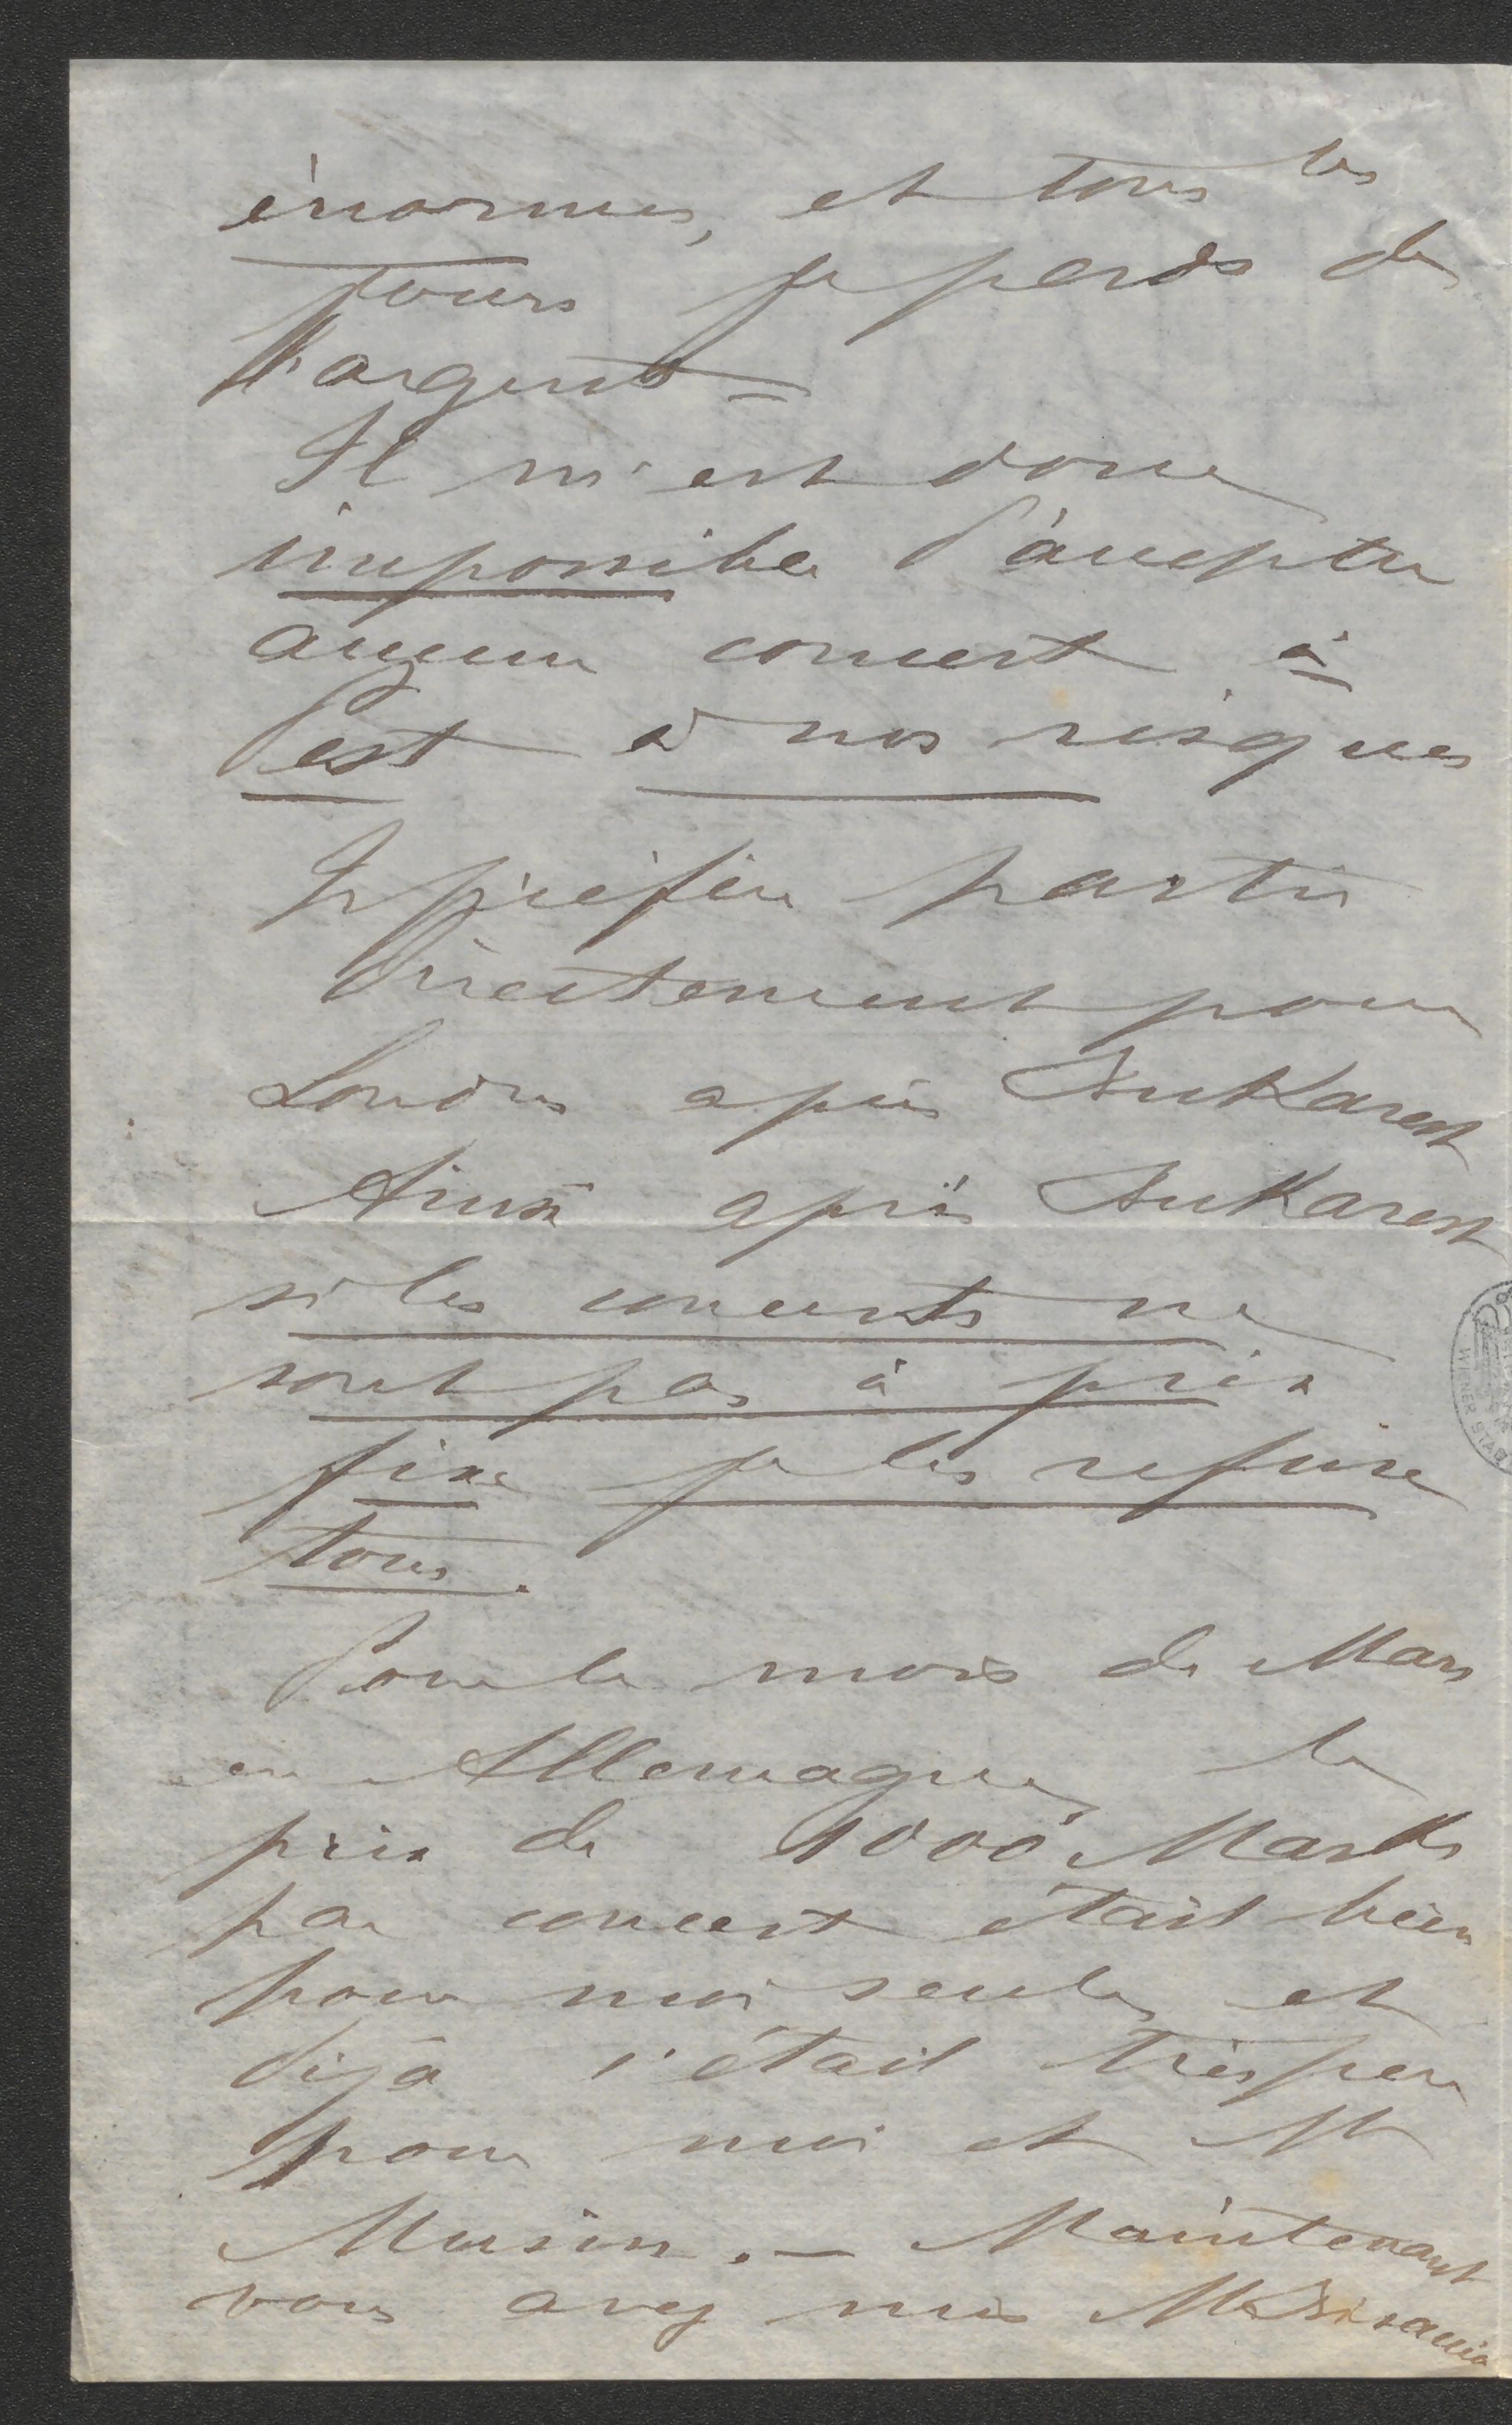 énormes, et tous les
jours je perds de
l'argent –
Il m'est donc
impossible d'accepter
aucun concert à
Pest à nos risques
Je préfère partir
directement pour
Londres après Bukarest
Ainsi après Bukarest
si les concerts ne
sont pas à prix
fixe je les refuse
tous.
Pour le mois de Mars
en Allemagne, le
prix de 1000 Marks
par concert était bien
pour moi seule, et
déjà c'était très peu
pour moi et Mr
Musin. – Maintenant
vous avez mis Mr
WIENER STAD